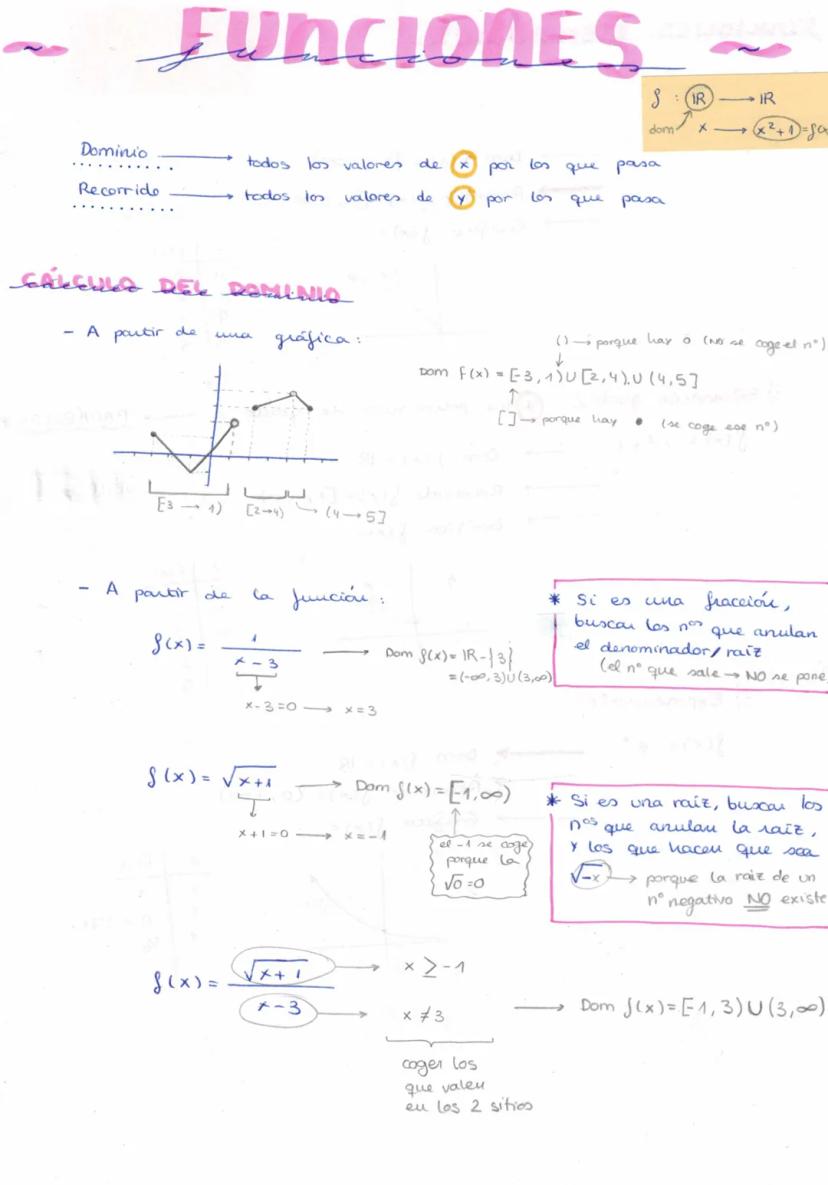 FUNCIONES
funciones
f : IR → IR
dom x → x²+1 = f(x
Dominio → todos los valores de x por los que pasa
Recorrido → todos los valores de y por los que pasa
CÁLCULO DEL DOMINIO
- A partir de una gráfica:
() → porque hay o (no se coge el nº)
Dom f(x) = [-3, 1) U [2, 4). U (4, 5]
[] → porque hay • (se coge ese nº)
[3 → 1) [2→4) → (4 → 5]
- A partir de la función:
* Si es una fracción,
buscar los nºs que anulan
el denominador / raíz
(el nº que sale → NO se pone
f(x) = 1/(x - 3) → Dom f(x) = IR - {3}
= (-∞, 3) U (3, ∞)
x - 3 = 0 → x = 3
f(x) = √(x+1) → Dom f(x) = [-1, ∞)
x + 1 = 0 → x = -1
el -1 se coge
porque la
√0 = 0
* Si es una raíz, buscar los
nºs que anulan la raíz,
y los que hacen que sea
√-x → porque la raíz de un
nº negativo NO existe
f(x) = √(x+1) / (x-3)
x ≥ -1
x ≠ 3 → Dom f(x) = [-1, 3) U (3, ∞)
coger los
que valen
en los 2 sitios